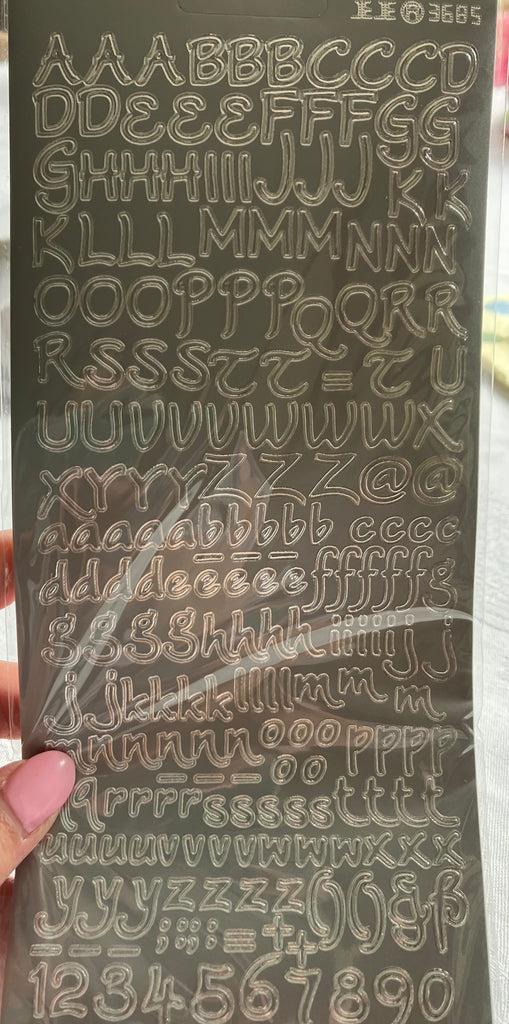 ® 3685
AAABBBCCCD
DDEEEFFFGG
GHHHIIIIJJJKK
KLLLMMMNNN
OOOOPPPQQRR
RSSSTT=TU
UUVVVWWWX
XYYYZZZ@@
aaaaabbbbbcccc
ddddeeeeefffffg
gggghhhhiiiijj
jjkkkkllllmmm
nnnnnooopppp
oo
qrrrrssssstttt
uuuuvvvvwwwxxx
yyyyzzzz()()&ß
;;;;=++
1234567890